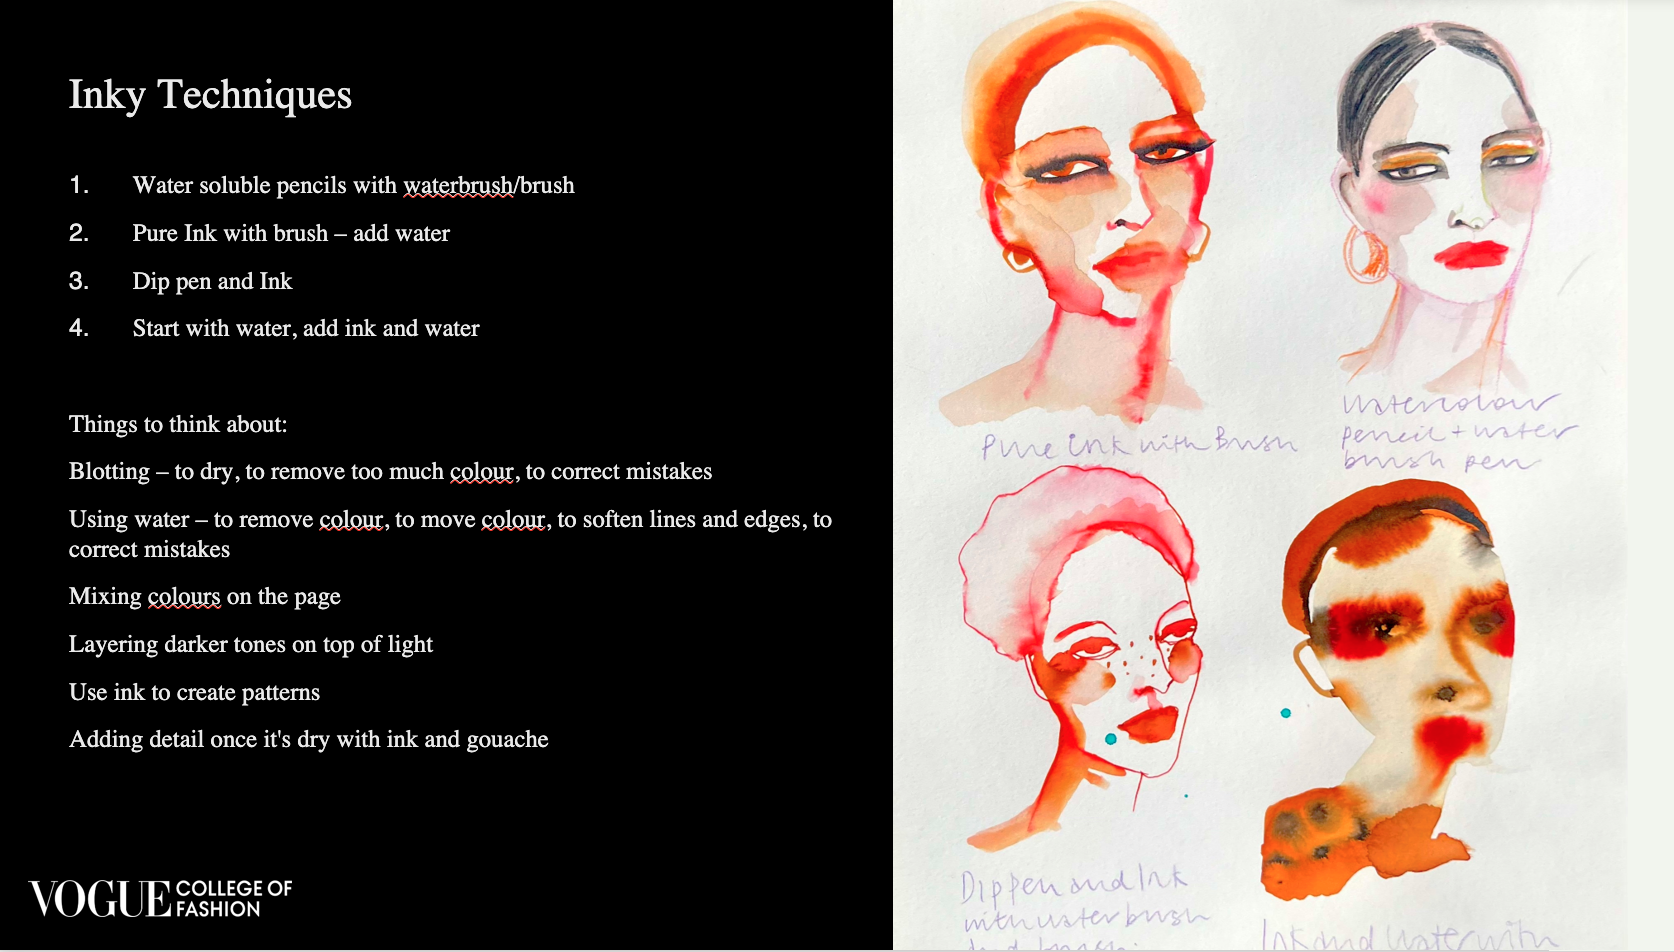 Inky Techniques
1. Water soluble pencils with waterbrush/brush
2. Pure Ink with brush – add water
3. Dip pen and Ink
4. Start with water, add ink and water
Things to think about:
Blotting – to dry, to remove too much colour, to correct mistakes
Using water – to remove colour, to move colour, to soften lines and edges, to
correct mistakes
Mixing colours on the page
Layering darker tones on top of light
Use ink to create patterns
Adding detail once it's dry with ink and gouache
VOGUE COLLEGE OF
FASHION
Pure ink with Brush
Watercolour
pencil + water
brush pen
Dip pen and Ink
with water brush
Ink and Water with